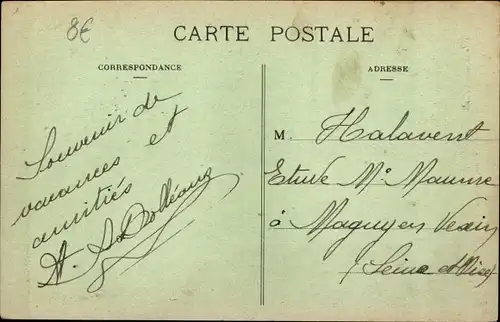 8€
CARTE POSTALE
CORRESPONDANCE
ADRESSE
Souvenir de
vacances et
amitiés
M. Halavent
Etude Me
à Magny en Vexin
(Seine et Oise)